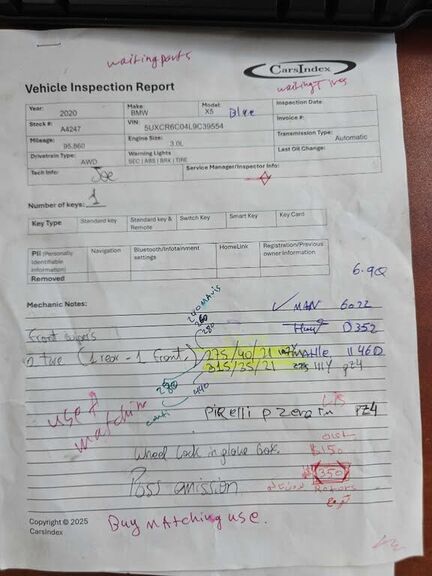 waiting parts
CarsIndex
Vehicle Inspection Report
waiting Tires
Year: 2020 Make: BMW Model: X5 Blue Inspection Date
Stock #: A4247 VIN: 5UXCR6C04L9C39554 Invoice #:
Mileage: 95,860 Engine Size: 3.0L Transmission Type: Automatic
Drivetrain Type: AWD Warning Lights SEC | ABS | BRK | TIRE Last Oil Change:
Tech Info: Joe Service Manager/Inspector Info:
Number of keys: 1
Key Type Standard key Standard key & Remote Switch Key Smart Key Key Card
PII (Personally Identifiable Information) Removed Navigation Bluetooth/Infotainment settings HomeLink Registration/Previous owner Information
6.9Q
Mechanic Notes:
MAN 6022
front wipers D352
2 tire (1 rear - 1 front) 275/40/21 1146D
315/35/21 111Y pz4
280 440
use matching
Pirelli p zero PZ4
wheel lock in glove box $150
Pass emission 350
Copyright © 2025
CarsIndex
Buy matching use.